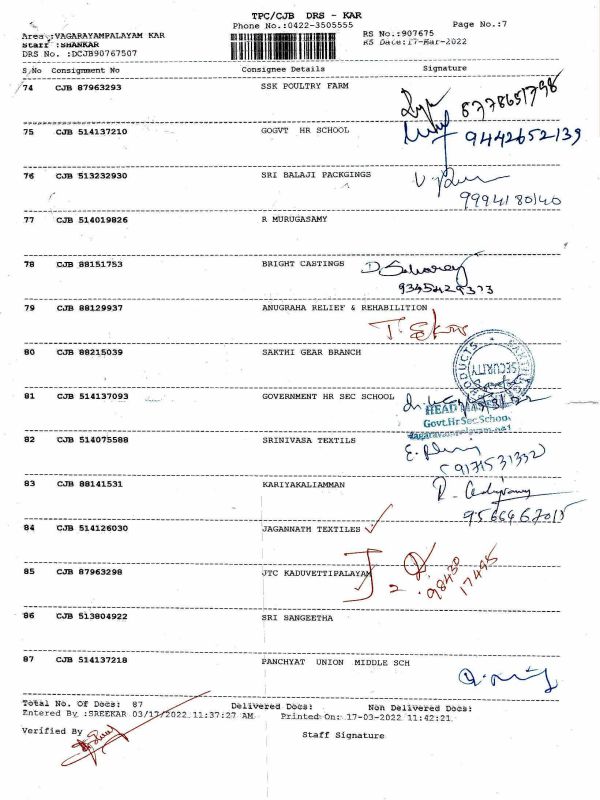 TPC/CJB DRS - KAR
Phone No.:0422-3505555 Page No.:7
Area :VAGARAYAMPALAYAM KAR RS No.:907675
Staff :SHANKAR RS Date:17-Mar-2022
DRS No. :DCJB90767507
S/No Consignment No Consignee Details Signature
74 CJB 87963293 SSK POULTRY FARM
8778651798
75 CJB 514137210 GOGVT HR SCHOOL
9442652139
76 CJB 513232930 SRI BALAJI PACKGINGS
9994180140
77 CJB 514019826 R MURUGASAMY
78 CJB 88151753 BRIGHT CASTINGS
79 CJB 88129937 ANUGRAHA RELIEF & REHABILITION
80 CJB 88215039 SAKTHI GEAR BRANCH
PRODUCTS SECURITY
81 CJB 514137093 GOVERNMENT HR SEC SCHOOL
Govt.Hr.Sec.School
82 CJB 514075588 SRINIVASA TEXTILS
9171531332
83 CJB 88141531 KARIYAKALIAMMAN
84 CJB 514126030 JAGANNATH TEXTILES
85 CJB 87963298 JTC KADUVETTIPALAYAM
98430
17495
86 CJB 513804922 SRI SANGEETHA
87 CJB 514137218 PANCHYAT UNION MIDDLE SCH
Total No. Of Docs: 87 Delivered Docs: Non Delivered Docs:
Entered By :SREEKAR 03/17/2022 11:37:27 AM Printed On: 17-03-2022 11:42:21
Verified By
Staff Signature